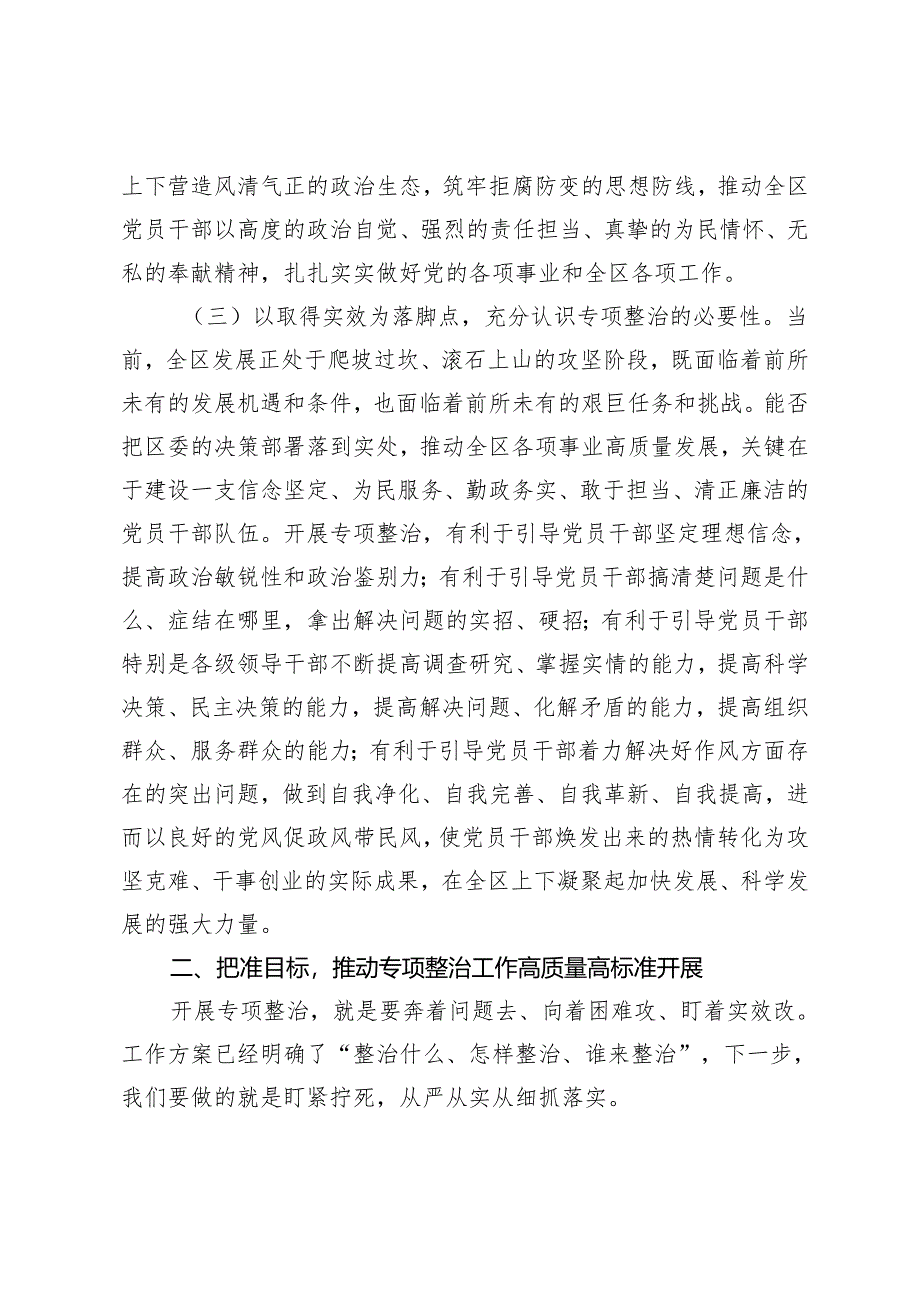 上下营造风清气正的政治生态，筑牢拒腐防变的思想防线，推动全区
党员干部以高度的政治自觉、强烈的责任担当、真挚的为民情怀、无
私的奉献精神，扎扎实实做好党的各项事业和全区各项工作。
（三）以取得实效为落脚点，充分认识专项整治的必要性。当
前，全区发展正处于爬坡过坎、滚石上山的攻坚阶段，既面临着前所
未有的发展机遇和条件，也面临着前所未有的艰巨任务和挑战。能否
把区委的决策部署落到实处，推动全区各项事业高质量发展，关键在
于建设一支信念坚定、为民服务、勤政务实、敢于担当、清正廉洁的
党员干部队伍。开展专项整治，有利于引导党员干部坚定理想信念，
提高政治敏锐性和政治鉴别力；有利于引导党员干部搞清楚问题是什
么、症结在哪里，拿出解决问题的实招、硬招；有利于引导党员干部
特别是各级领导干部不断提高调查研究、掌握实情的能力，提高科学
决策、民主决策的能力，提高解决问题、化解矛盾的能力，提高组织
群众、服务群众的能力；有利于引导党员干部着力解决好作风方面存
在的突出问题，做到自我净化、自我完善、自我革新、自我提高，进
而以良好的党风促政风带民风，使党员干部焕发出来的热情转化为攻
坚克难、干事创业的实际成果，在全区上下凝聚起加快发展、科学发
展的强大力量。
二、把准目标，推动专项整治工作高质量高标准开展
开展专项整治，就是要奔着问题去、向着困难攻、盯着实效改。
工作方案已经明确了“整治什么、怎样整治、谁来整治”，下一步，
我们要做的就是盯紧拧死，从严从实从细抓落实。